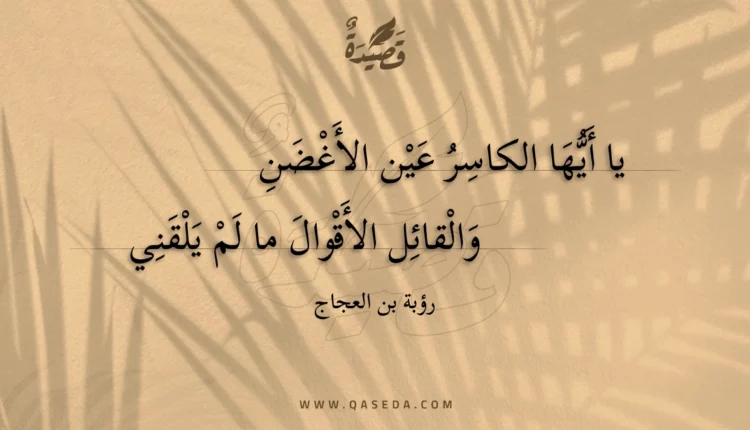 قَصِيْدَةٌ
يا أَيُّهَا الكاسِرُ عَيْن الأَغْضَنِ
وَالْقائِل الأَقْوالَ ما لَمْ يَلْقَنِي
رؤبة بن العجاج
WWW.QASEDA.COM